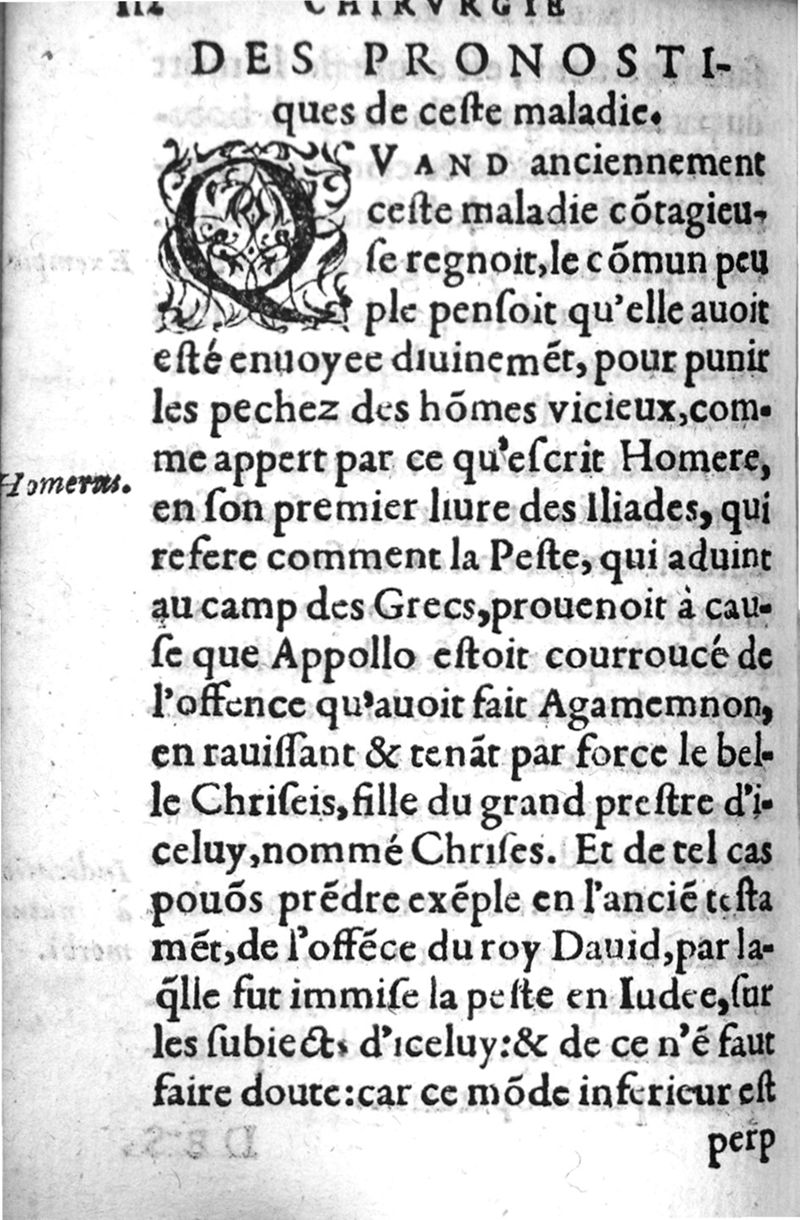 112 CHIRVRGIE
DES PRONOSTI-
ques de ceſte maladie.
QVAND anciennement
ceſte maladie cõtagieu-
ſe regnoit,le cõmun peu
ple penſoit qu'elle auoit
eſté enuoyee diuinemẽt, pour punir
les pechez des hõmes vicieux,com-
me appert par ce qu'eſcrit Homere,
Homerus.
en ſon premier liure des Iliades, qui
refere comment la Peſte, qui aduint
au camp des Grecs,prouenoit à cau-
ſe que Appollo eſtoit courroucé de
l'offence qu'auoit fait Agamemnon,
en rauiſſant & tenãt par force le bel-
le Chriſeis, fille du grand preſtre d'i-
celuy,nommé Chriſes. Et de tel cas
pouõs prẽdre exẽple en l'anciẽ teſta
mẽt,de l'offẽce du roy Dauid,par la-
q̃lle fut immiſe la peſte en Iudee,ſur
les ſubiects d'iceluy:& de ce n'ẽ faut
faire doute:car ce mõde inferieur eſt
perp